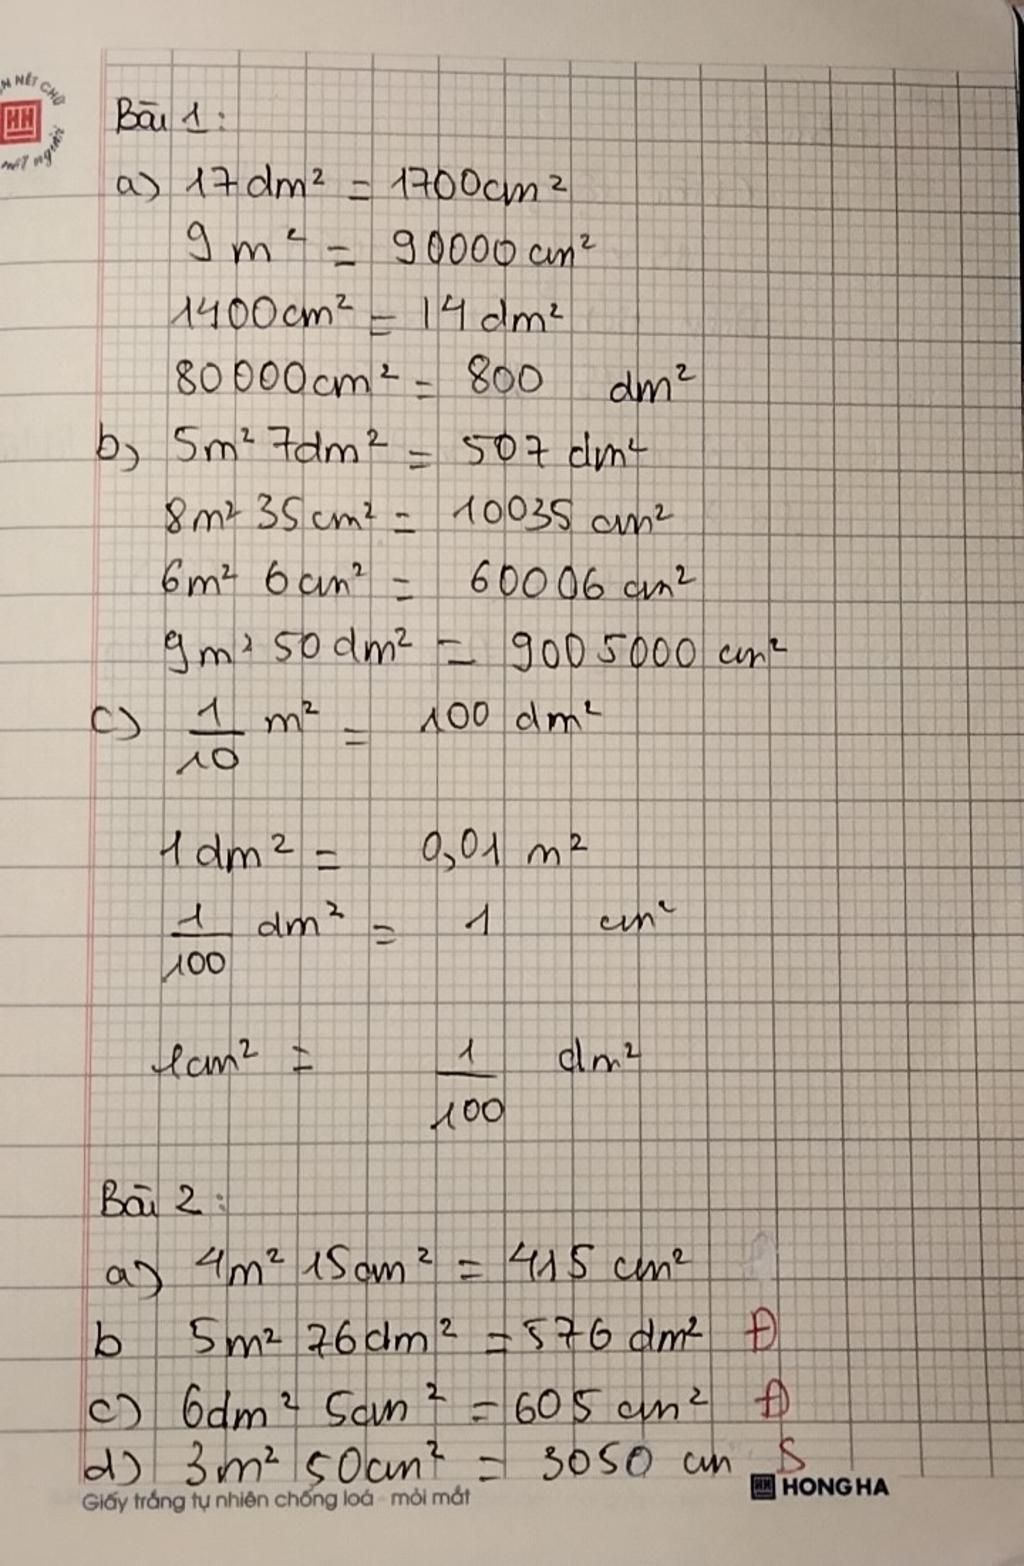 N NÉT CHỮ
HH
nết người
Bài 1:
a) 17dm² = 1700cm²
9m² = 90000cm²
1400cm² = 14dm²
80000cm² = 800 dm²
b) 5m² 7dm² = 507dm²
8m² 35cm² = 10035 cm²
6m² 6cm² = 60006 cm²
9m² 50dm² = 9005000 cm²
c) 1/10 m² = 100 dm²
1dm² = 0,01 m²
1/100 dm² = 1 cm²
1cm² = 1/100 dm²
Bài 2:
a) 4m² 15cm² = 415 cm²
b 5m² 76dm² = 576 dm² Đ
c) 6dm² 5cm² = 605 cm² Đ
d) 3m² 50cm² = 3050 cm S
Giấy trắng tự nhiên chống loá - mỏi mắt
HH HONG HA